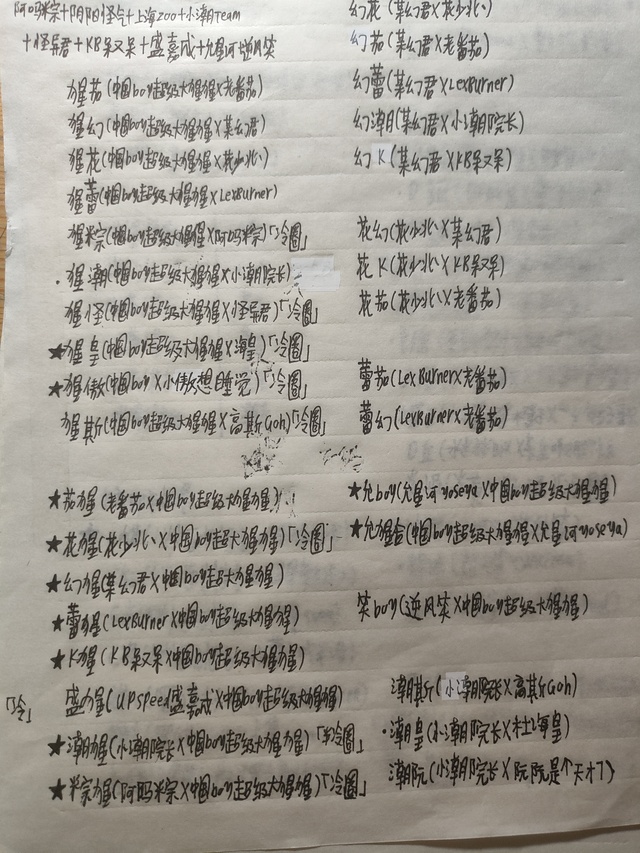 阿吗粽+阴阳怪气+上海zoo+小潮Team
+怪异君+KB呆又呆+盛嘉成+允星河+逆风笑
猩茄(中国boy超级大猩猩×老番茄)
猩幻(中国boy超级大猩猩×某幻君)
猩花(中国boy超级大猩猩×花少北)
猩蕾(中国boy超级大猩猩×LexBurner)
猩粽(中国boy超级大猩猩×阿吗粽)「冷圈」
猩潮(中国boy超级大猩猩×小潮院长)
猩怪(中国boy超级大猩猩×怪异君)「冷圈」
★猩皇(中国boy超级大猩猩×潮皇)「冷圈」
★猩傲(中国boy×小傲想睡觉)「冷圈」
猩斯(中国boy超级大猩猩×高斯Goh)「冷圈」
★茄猩(老番茄×中国boy超级大猩猩)
★花猩(花少北×中国boy超大猩猩)「冷圈」
★幻猩(某幻君×中国boy超大猩猩)
★蕾猩(LexBurner×中国boy超级大猩猩)
★K猩(KB呆又呆×中国boy超级大猩猩)
「冷」 盛猩(UPspeed盛嘉成×中国boy超级大猩猩)
★潮猩(小潮院长×中国boy超级大猩猩)「半冷圈」
★粽猩(阿吗粽×中国boy超级大猩猩)「冷圈」
幻花(某幻君×花少北)
幻茄(某幻君×老番茄)
幻蕾(某幻君×LexBurner)
幻潮(某幻君×小潮院长)
幻K(某幻君×KB呆又呆)
花幻(花少北×某幻君)
花K(花少北×KB呆又呆)
花茄(花少北×老番茄)
蕾茄(LexBurner×老番茄)
蕾幻(LexBurner×老番茄)
★允boy(允星河yoseya×中国boy超级大猩猩)
★允猩合(中国boy超级大猩猩×允星河yoseya)
笑boy(逆风笑×中国boy超级大猩猩)
潮斯(小潮院长×高斯Goh)
·潮皇(小潮院长×杜海皇)
潮阮(小潮院长×阮阮是个天才)